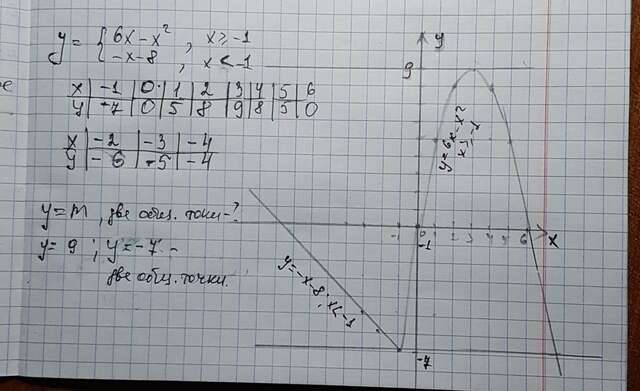 y = { 6x - x², x ≥ -1
-x - 8, x < -1
x | -1 | 0 | 1 | 2 | 3 | 4 | 5 | 6
y | -7 | 0 | 5 | 8 | 9 | 8 | 5 | 0
x | -2 | -3 | -4
y | -6 | -5 | -4
y = m, две общ. точки - ?
y = 9; y = -7 -
две общ. точки.
y
9
y = 6x - x²
x ≥ -1
-1 0 1 2 3 4 5 6 x
-1
y = -x - 8; x < -1
-7